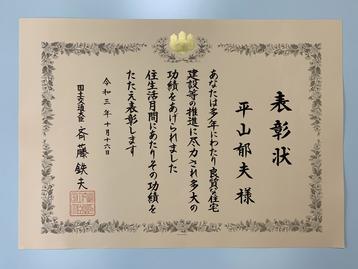 表彰状
平山郁夫 様
あなたは多年にわたり良質な住宅
建設等の推進に尽力され多大の
功績をあげられました
住生活月間にあたりその功績を
たたえ表彰します
令和三年十月十六日
国土交通大臣 斉藤鉄夫